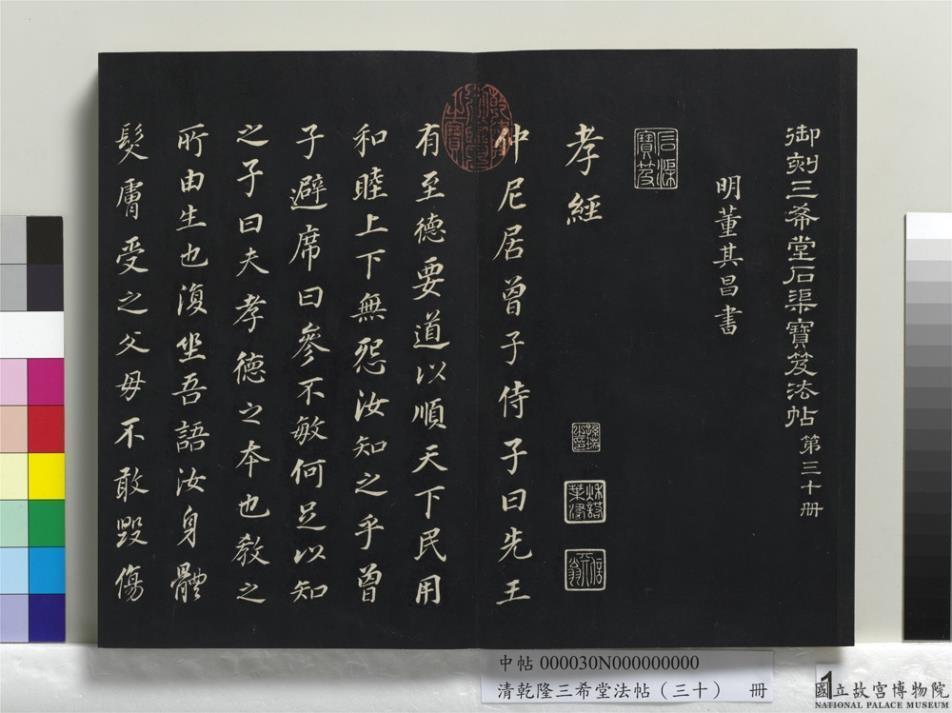 御刻三希堂石渠寶笈法帖 第三十冊
明董其昌書
石渠寶笈
孝經
仲尼居曾子侍子曰先王
有至德要道以順天下民用
和睦上下無怨汝知之乎曾
子避席曰參不敏何足以知
之子曰夫孝德之本也教之
所由生也復坐吾語汝身體
髮膚受之父母不敢毀傷
中帖 000030N000000000
清乾隆三希堂法帖（三十） 冊
1
國立故宮博物院
NATIONAL PALACE MUSEUM